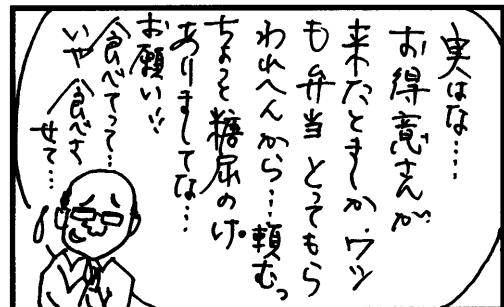 実はな…
お得意さんが
来たときしか、ウチ
も弁当とってもら
われへんから…頼むっ
ちょっと糖尿のけ。
ありましてな…
お願い!!
食べてって…
いや食べさ
せて…